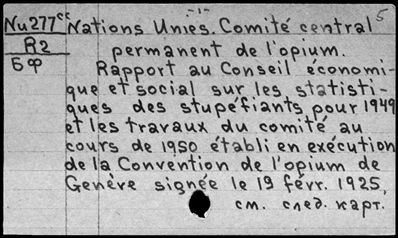 -1-
Nu277cc Nations Unies. Comité central 5
R2 permanent de l'opium.
БФ Rapport au Conseil économi-
que et social sur les statisti-
ques des stupéfiants pour 1949
et les travaux du comité au
cours de 1950 établi en exécution
de la Convention de l'opium de
Genève signée le 19 févr. 1925,
см. след. карт.